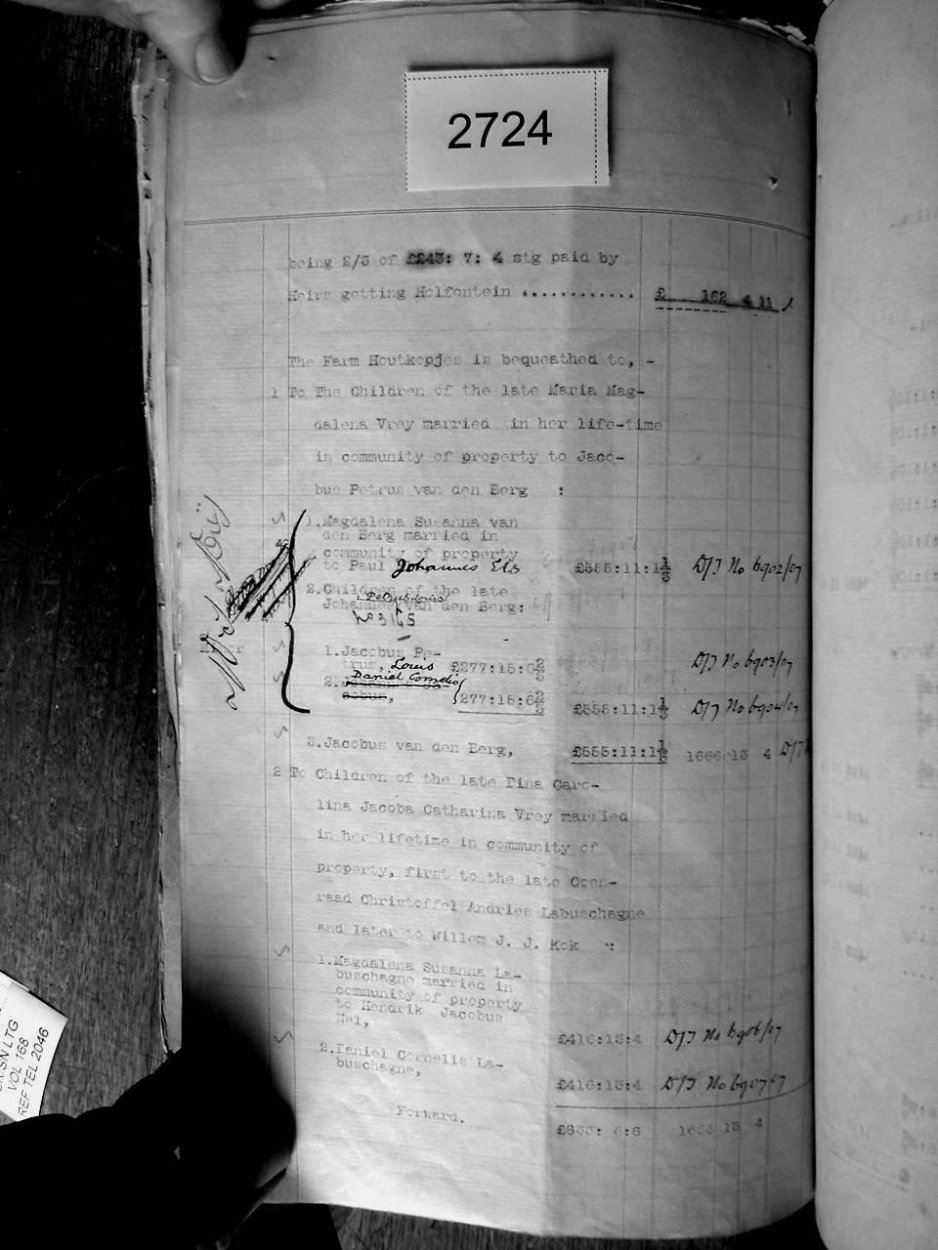 2724
being 2/3 of ££43: 7: 4 stg paid by
Heirs getting Holfontein ............ £ 162 4 11
The Farm Houtkopjes is bequeathed to, -
1 To The Children of the late Maria Mag-
dalena Vrey married in her life-time
in community of property to Jaco-
bus Petrus van den Berg :
1.Magdalena Susanna van
den Berg married in
community of property
to Paul Johannes Els £555:11:1 1/3 D/T No 6902/07
2.Children of the late
Petrus Louis
Johannes van den Berg:
No 3
1.Jacobus Pe-
trus, Louis £277:15:6 2/3 D/T No 6903/07
Daniel Cornelis
2.
277:15:6 2/3 £555:11:1 1/3 D/T No 6904/07
3.Jacobus van den Berg, £555:11:1 1/3 1666 13 4 D/T
2 To Children of the late Dina Caro-
lina Jacoba Catharina Vrey married
in her lifetime in community of
property, first to the late Coen-
raad Christoffel Andries Labuschagne
and later to Willem J. J. Kok :
1.Magdalena Susanna La-
buschagne married in
community of property
to Hendrik Jacobus
Nel, £416:13:4 D/T No 6906/07
2.Daniel Cornelis La-
buschagne, £416:13:4 D/T No 6907/07
Forward. £833: 6:8 1666 13 4
SN LTG
VOL 168
REF TEL 2046